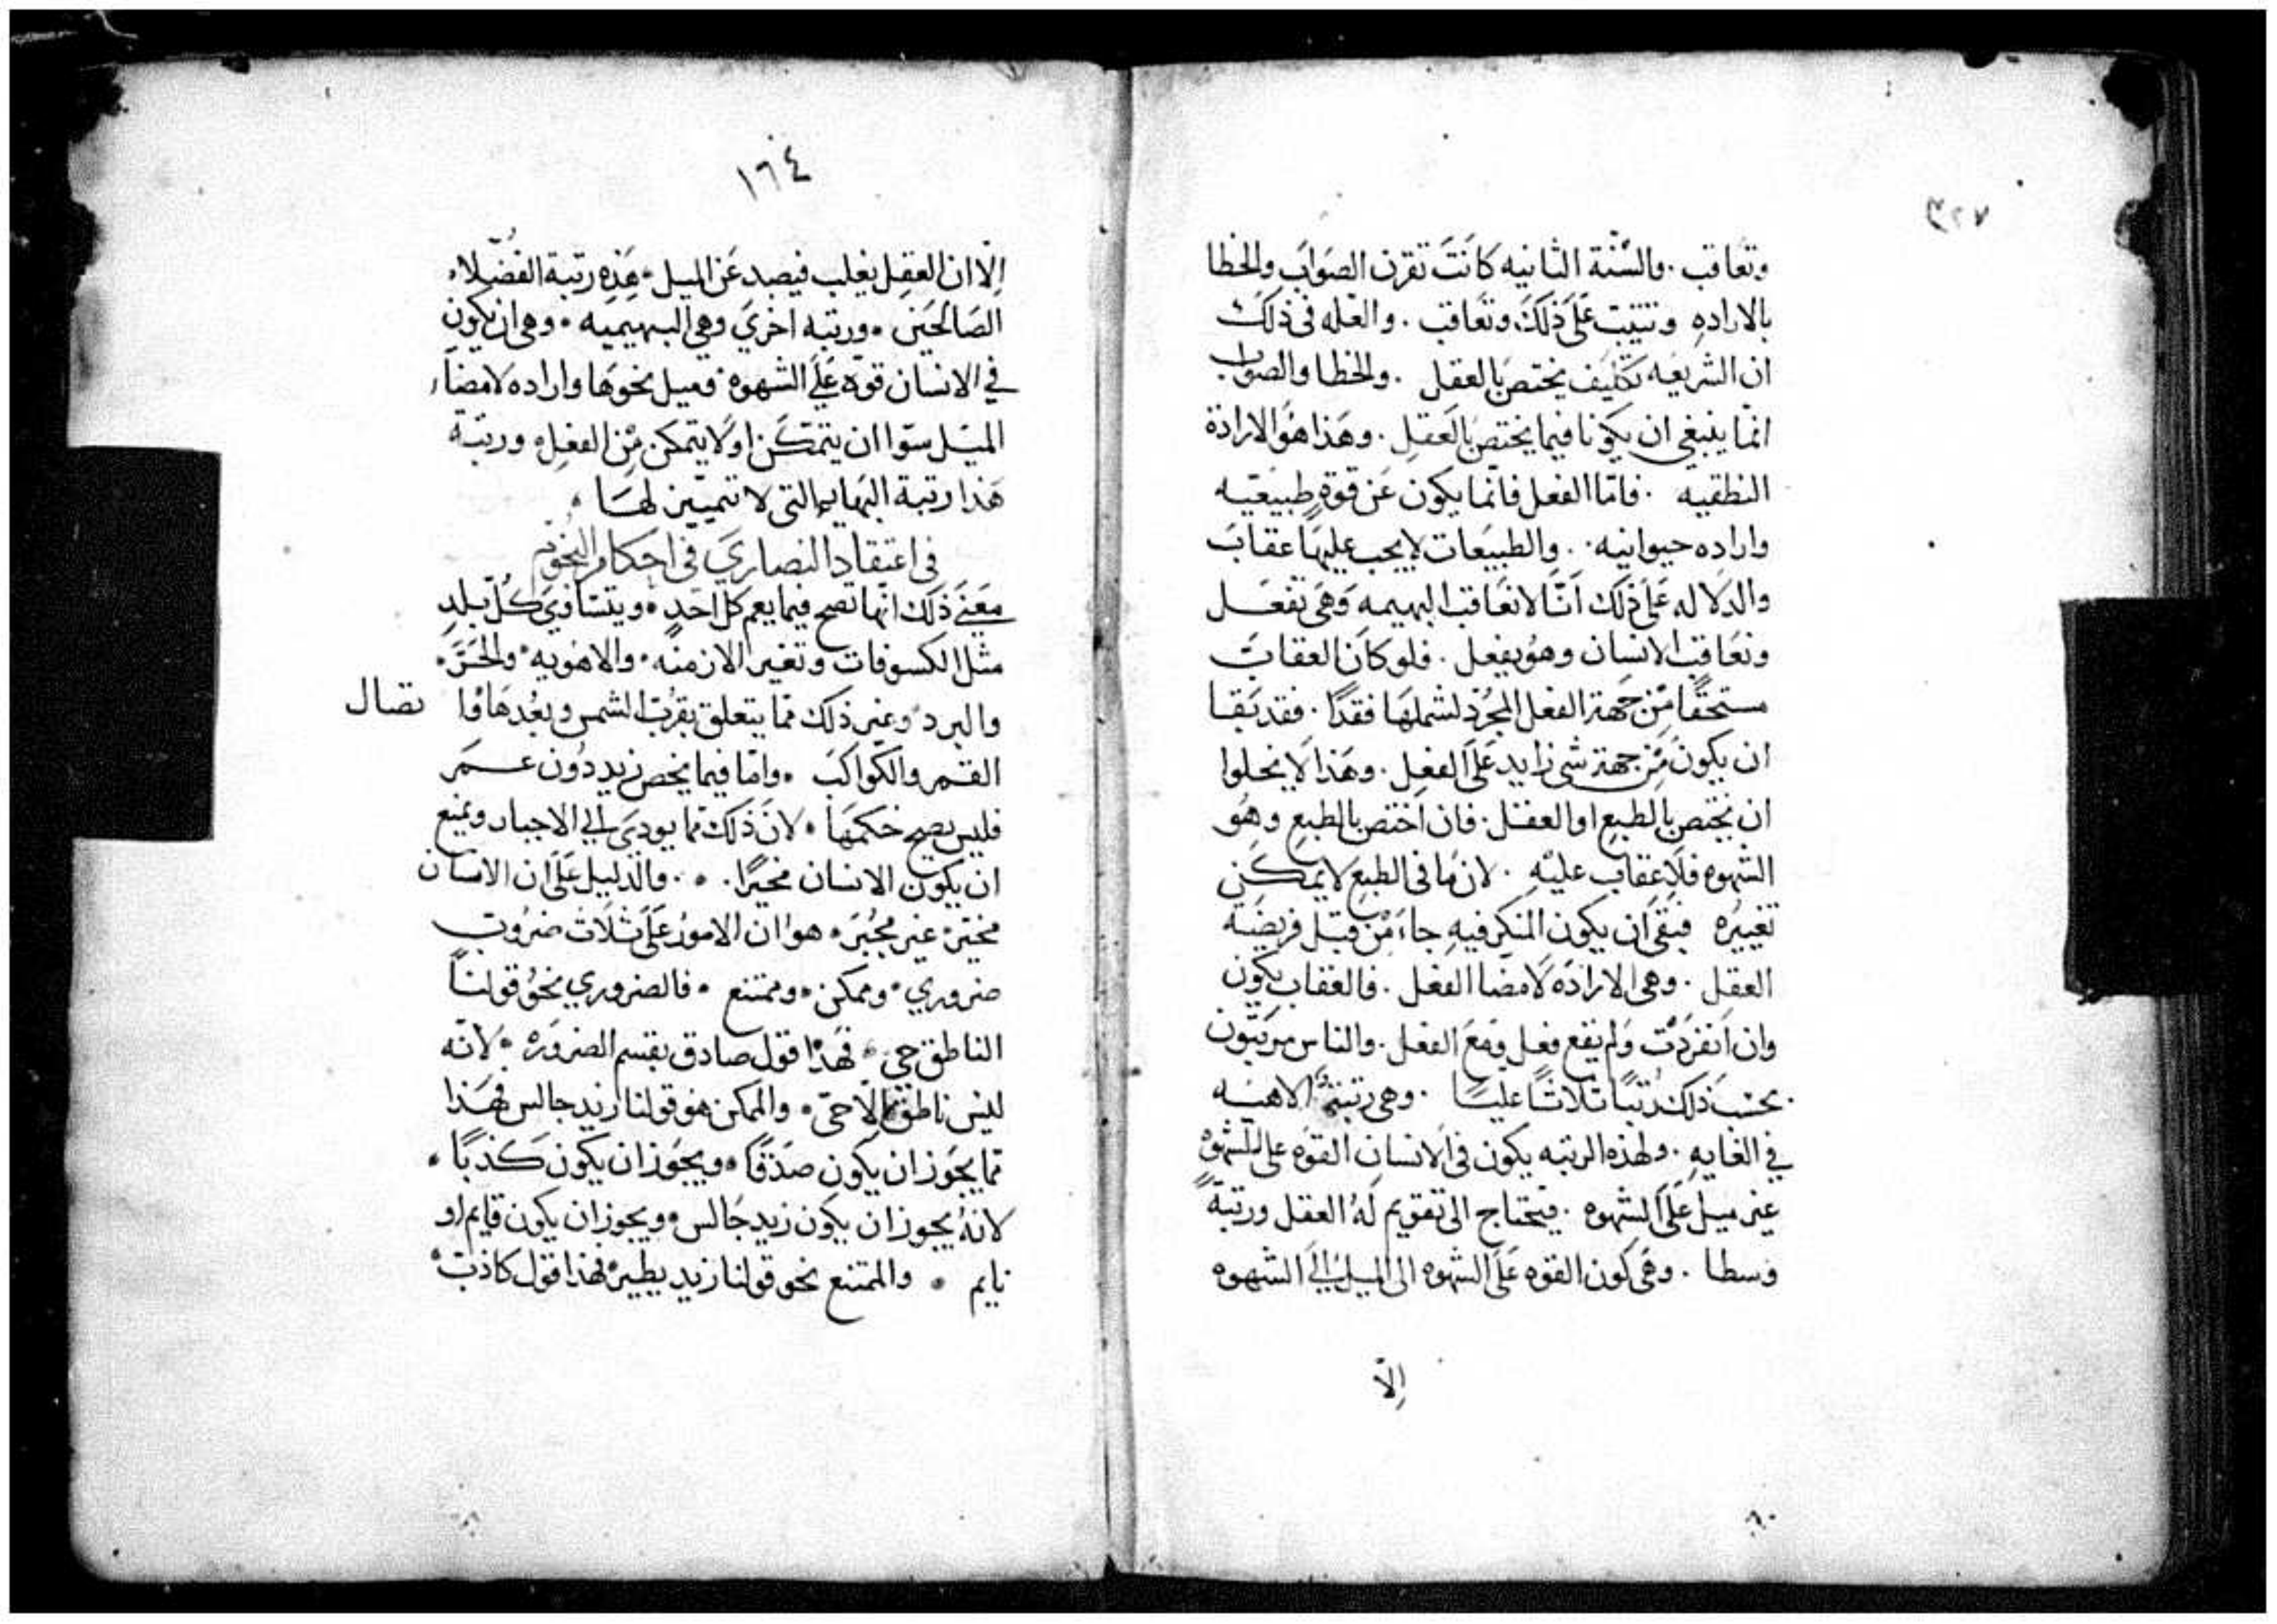 ٣٢٧
وتعاقب . والسنة الثانيه كانت تقرن الصواب والخطا
بالاراده وتثيب على ذلك وتعاقب . والعله فى ذلك
ان الشريعه تكليف يختص بالعقل . والخطا والصواب
انما ينبغى ان يكونا فيما يختص بالعقل . وهذا هو الارادة
النطقيه . فاما الفعل فانما يكون عن قوة طبيعيه
واراده حيوانيه . والطبيعات لا يجب عليها عقاب
والدلاله على ذلك اننا لا نعاقب البهيمه وهى تفعل
ونعاقب الانسان وهو يفعل . فلو كان العقاب
مستحقا من جهة الفعل المجرد لشملها فقدا . فقد بقا
ان يكون من جهة شى زايد على الفعل . وهذا لا يخلوا
ان يختص بالطبع او العقل . فان اختص بالطبع وهو
الشهوه فلا عقاب عليه . لان ما فى الطبع لا يمكن
تغييره فبقى ان يكون المنكر فيه جاء من قبل فريضة
العقل . وهى الاراده لامضا الفعل . فالعقاب يكون
وان انفردت ولم يقع فعل ومع الفعل . والناس مرتبون
بحسب ذلك رتبا ثلاثا عليا . وهى رتبة الاهيه
في الغايه . ولهذه الرتبه يكون فى الانسان القوه على الشهوه
غير ميل على الشهوه . فيحتاج الى تقويم له العقل ورتبة
وسطا . وهى كون القوه على الشهوه الى الميل الى الشهوه
إلا
١٦٤
إلا ان العقل يغلب فيصد عن الميل . هذه رتبة الفضلاء
الصالحين . ورتبه اخرى وهى البهيميه . وهى ان يكون
في الانسان قوة على الشهوه . وميل نحوها واراده لامضاء
الميل سوا ان يتمكن او لا يتمكن من الفعل . ورتبة
هذا رتبة البهايم التى لا تمييز لها .
فى اعتقاد النصارى فى احكام النجوم
معنى ذلك انها تصح فيما يعم كل احد . ويتساوى كل بلد
مثل الكسوفات وتغير الازمنه . والاهويه . والحر .
والبرد . وغير ذلك مما يتعلق بقرب الشمس وبعدها وا تصال
القمر والكواكب . واما فيما يخص زيد دون عمر
فليس يصح حكمها . لان ذلك مما يودى الى الاجبار ويمنع
ان يكون الانسان مخيرا . . والدليل على ان الانسان
مخير . غير مجبر . هو ان الامور على ثلاث ضروب
ضروري . وممكن . وممتنع . فالضروري نحو قولنا
الناطق حي . فهذا قول صادق بقسم الضروره . لانه
ليس ناطق إلا حى . والممكن هو قولنا زيد جالس فهذا
مما يجوز ان يكون صدقا . ويجوز ان يكون كذبا .
لانه يجوز ان يكون زيد جالس . ويجوز ان يكون قايم او
نايم . والممتنع نحو قولنا زيد يطير . فهذا قول كاذب .